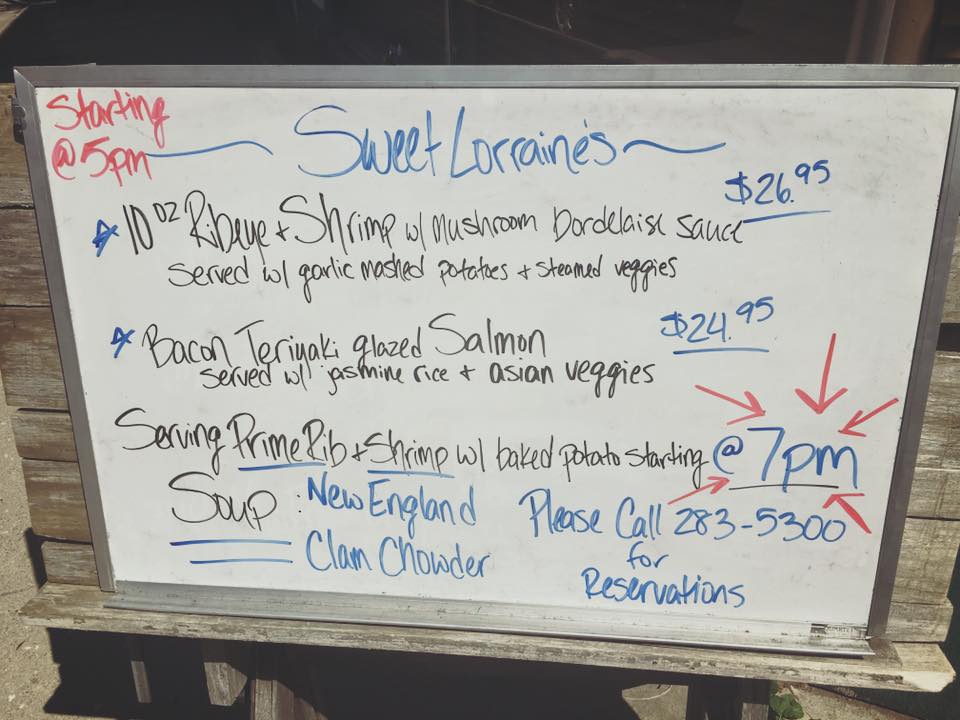 Starting
@ 5pm
Sweet Lorraine's
$26.95
10 oz Ribeye + Shrimp w/ Mushroom Bordelaise sauce
served w/ garlic mashed potatoes + steamed veggies
$24.95
Bacon Teriyaki glazed Salmon
served w/ jasmine rice + asian veggies
Serving Prime Rib + Shrimp w/ baked potato starting @ 7pm
Soup : New England
Clam Chowder
Please Call 283-5300
for
Reservations